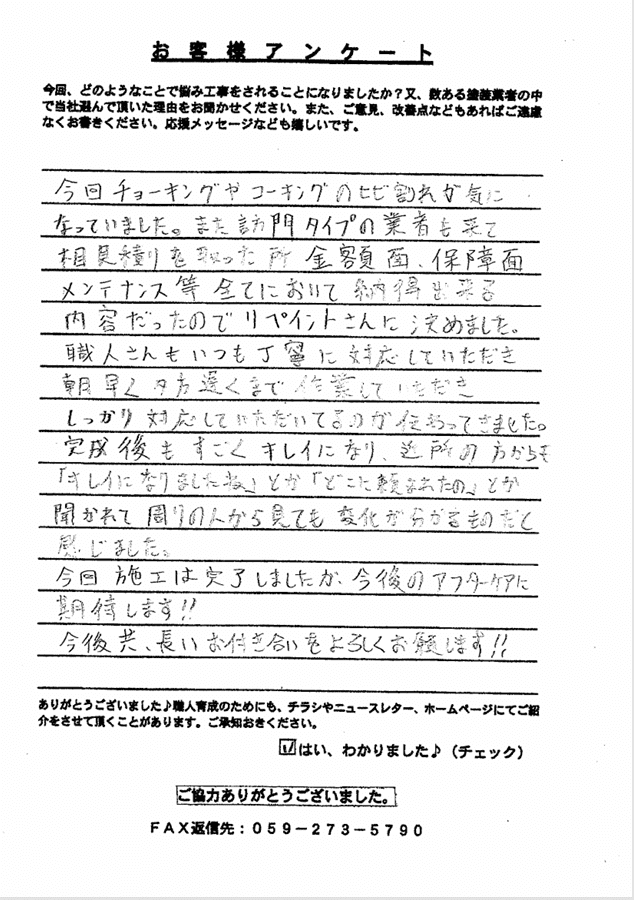 お客様アンケート
今回、どのようなことで悩み工事をされることになりましたか？又、数ある塗装業者の中
で当社選んで頂いた理由をお聞かせください。また、ご意見、改善点などもあればご遠慮
なくお書きください。応援メッセージなども嬉しいです。
今回チョーキングやコーキングのヒビ割れが気に
なっていました。また訪門タイプの業者も来て
相見積りを取った所 金額面、保障面
メンテナンス等 全てにおいて 納得出来る
内容だったのでリペイントさんに決めました。
職人さんもいつも丁寧に対応していただき
朝早く夕方遅くまで作業していただき
しっかり対応していただいてるのが伝わってきました。
完成後もすごくキレイになり、近所の方からも
「キレイになりましたね」とか「どこに頼まれたの」とか
聞かれて 周りの人から見ても変化が分かるものだと
感じました。
今回施工は完了しましたが、今後のアフターケアに
期待します!!
今後共、長いお付き合いをよろしくお願します!!
ありがとうございました♪職人育成のためにも、チラシやニュースレター、ホームページにてご紹
介をさせて頂くことがあります。ご承知おきください。
☑はい、わかりました♪（チェック）
ご協力ありがとうございました。
ＦＡＸ返信先：０５９－２７３－５７９０